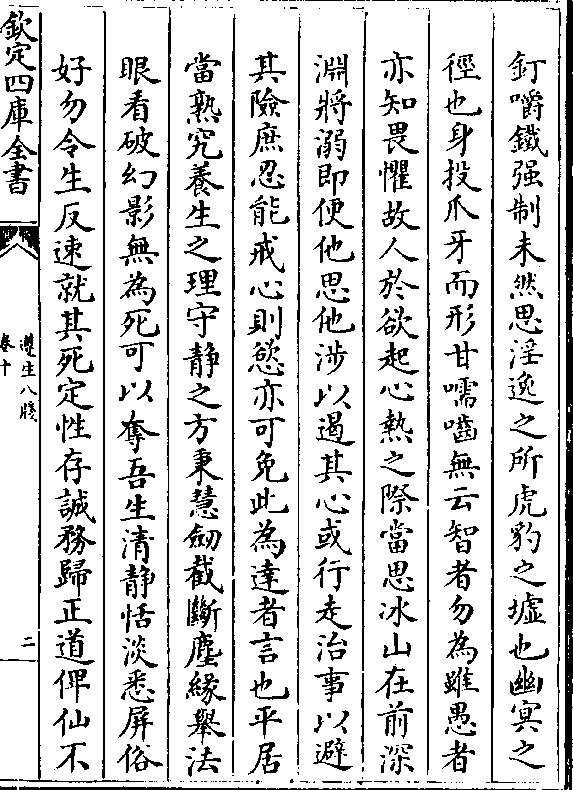 釘嚼鐵强制未然思淫逸之所虎豹之墟也幽冥之
徑也身投爪牙而形甘嚅嚙無云智者勿為雖愚者
亦知畏懼故人於欲起心熱之際當思冰山在前深
淵將溺即便他思他涉以遏其心或行走治事以避
其險庶忍能戒心則慾亦可免此為達者言也平居
當熟究養生之理守靜之方秉慧劒截斷塵緣舉法
眼看破幻影無為死可以奪吾生清静恬淡悉屏俗
好勿令生反速就其死定性存誠務歸正道俾仙不
欽定四庫全書
遵生八牋
卷十
二